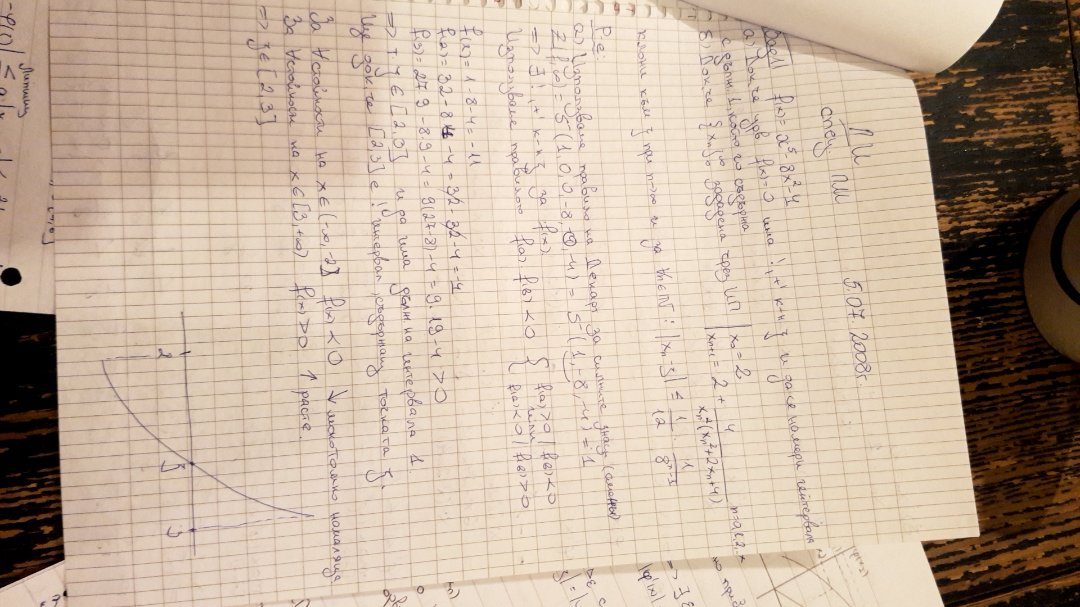 ПИ
спец. ПМ
5.07.2008г.
Зад1 f(x) = x⁵-8x²-4
а) Док. че урв f(x)=0 има !, "+" к-н ξ и да се намери интервала
с дълж. 1, който го съдържа
б) Док че {xₙ}₀^∞ зададена чрез ИП | x₀ = 2
| xₙ₊₁ = 2 + 4/(xₙ²(xₙ²+2xₙ+4)) n=0,1,2,..
клони към ξ при n→∞ и за ∀n∈ℕ: |xₙ-ξ| ≤ 1/12 · 1/8ⁿ⁻¹
Р-е:
а) Използваме правило на Декарт за силните знаци
Z(f,∞) = S⁻(1,0,0,-8,0,-4) = S⁻(1,-8,-4) = 1
=> ∃!, "+" к-н ξ за f(x).
Използваме правилото f(a) f(b) < 0 { f(a)>0 | f(b)<0
или
f(a)<0 | f(b)>0
f(1) = 1-8-4 = -11
f(2) = 32-8·4-4 = 32-32-4 = -4
f(3) = 27·9-8·9-4 = 9(27-8)-4 = 9·19-4 > 0
=> т. ξ ∈ [2,3] и да има дълж. на интервала 1.
Ще док. че [2,3] е ! интервал, съдържащ точката ξ.
За ∀ стойности на x∈(-∞,-2] f(x) < 0 ↓ монотонно намаляща
За ∀ стойности на x∈[3,+∞) f(x) > 0 ↑ расте.
=> ξ∈[2,3]
2 ξ 3
Липшиц